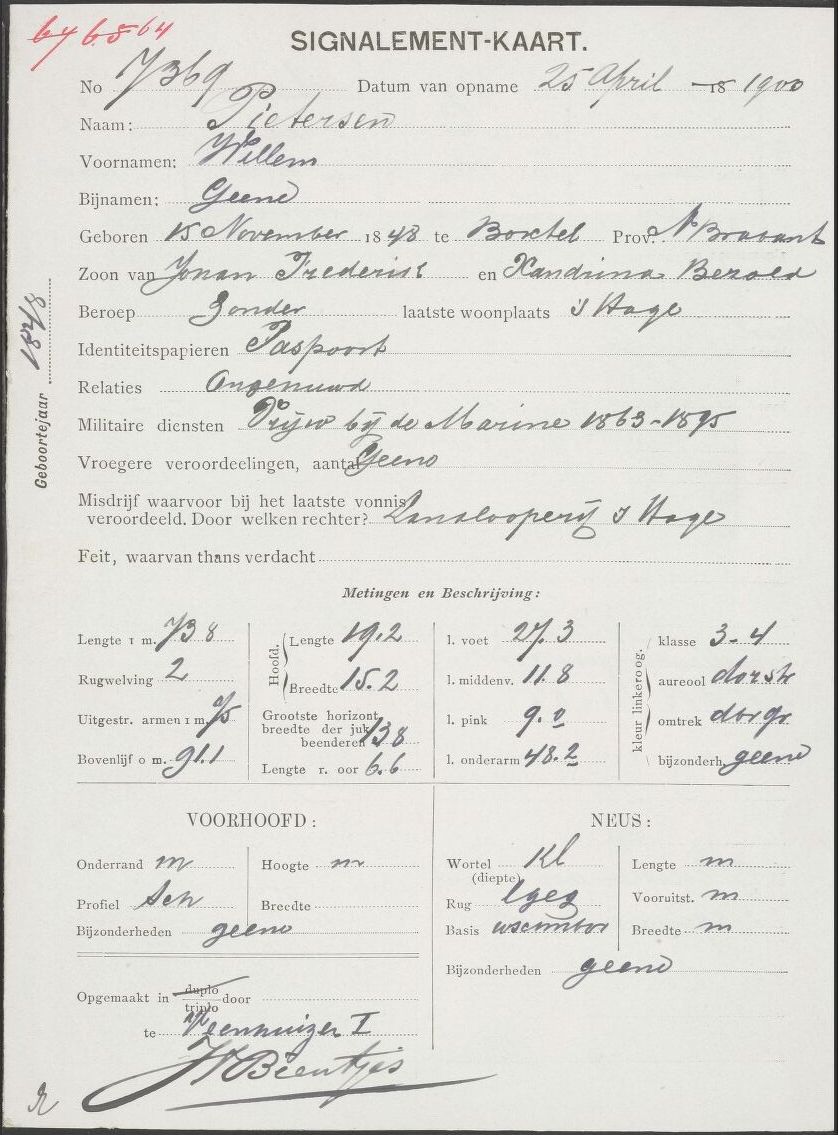 6y 6.8 64
SIGNALEMENT-KAART.
No 7369 Datum van opname 25 April 18 1900
Naam: Pietersen
Voornamen: Willem
Bijnamen: Geene
Geboren 15 November 1848 te Boxtel Prov. N Brabant
Zoon van Johan Frederik en Xandrina Berold
Beroep Zonder laatste woonplaats 's Hage
Identiteitspapieren Paspoort
Relaties Ongehuwd
Militaire diensten Vrijw bij de Marine 1863-1895
Vroegere veroordeelingen, aantal Geene
Misdrijf waarvoor bij het laatste vonnis
veroordeeld. Door welken rechter? Landlooperij 's Hage
Feit, waarvan thans verdacht
Geboortejaar 1848
Metingen en Beschrijving:
Lengte 1 m. 73 8
Rugwelving 2
Uitgestr. armen 1 m.
Bovenlijf 0 m. 91.1
Hoofd.
Lengte 19.2
Breedte 15.2
Grootste horizont.
breedte der juk-
beenderen 138
Lengte r. oor 6.6
l. voet 27.3
l. middenv. 11.8
l. pink 9.0
l. onderarm 48.2
kleur linkeroog.
klasse 3-4
aureool dorstr
omtrek dbrgr
bijzonderh. geene
VOORHOOFD:
Onderrand m
Profiel sch
Hoogte m
Breedte
Bijzonderheden geene
NEUS:
Wortel Kl
(diepte)
Rug
Basis
Lengte m
Vooruitst. m
Breedte m
Bijzonderheden geene
Opgemaakt in duplo door
triplo
te Veenhuizen I
Beentjes